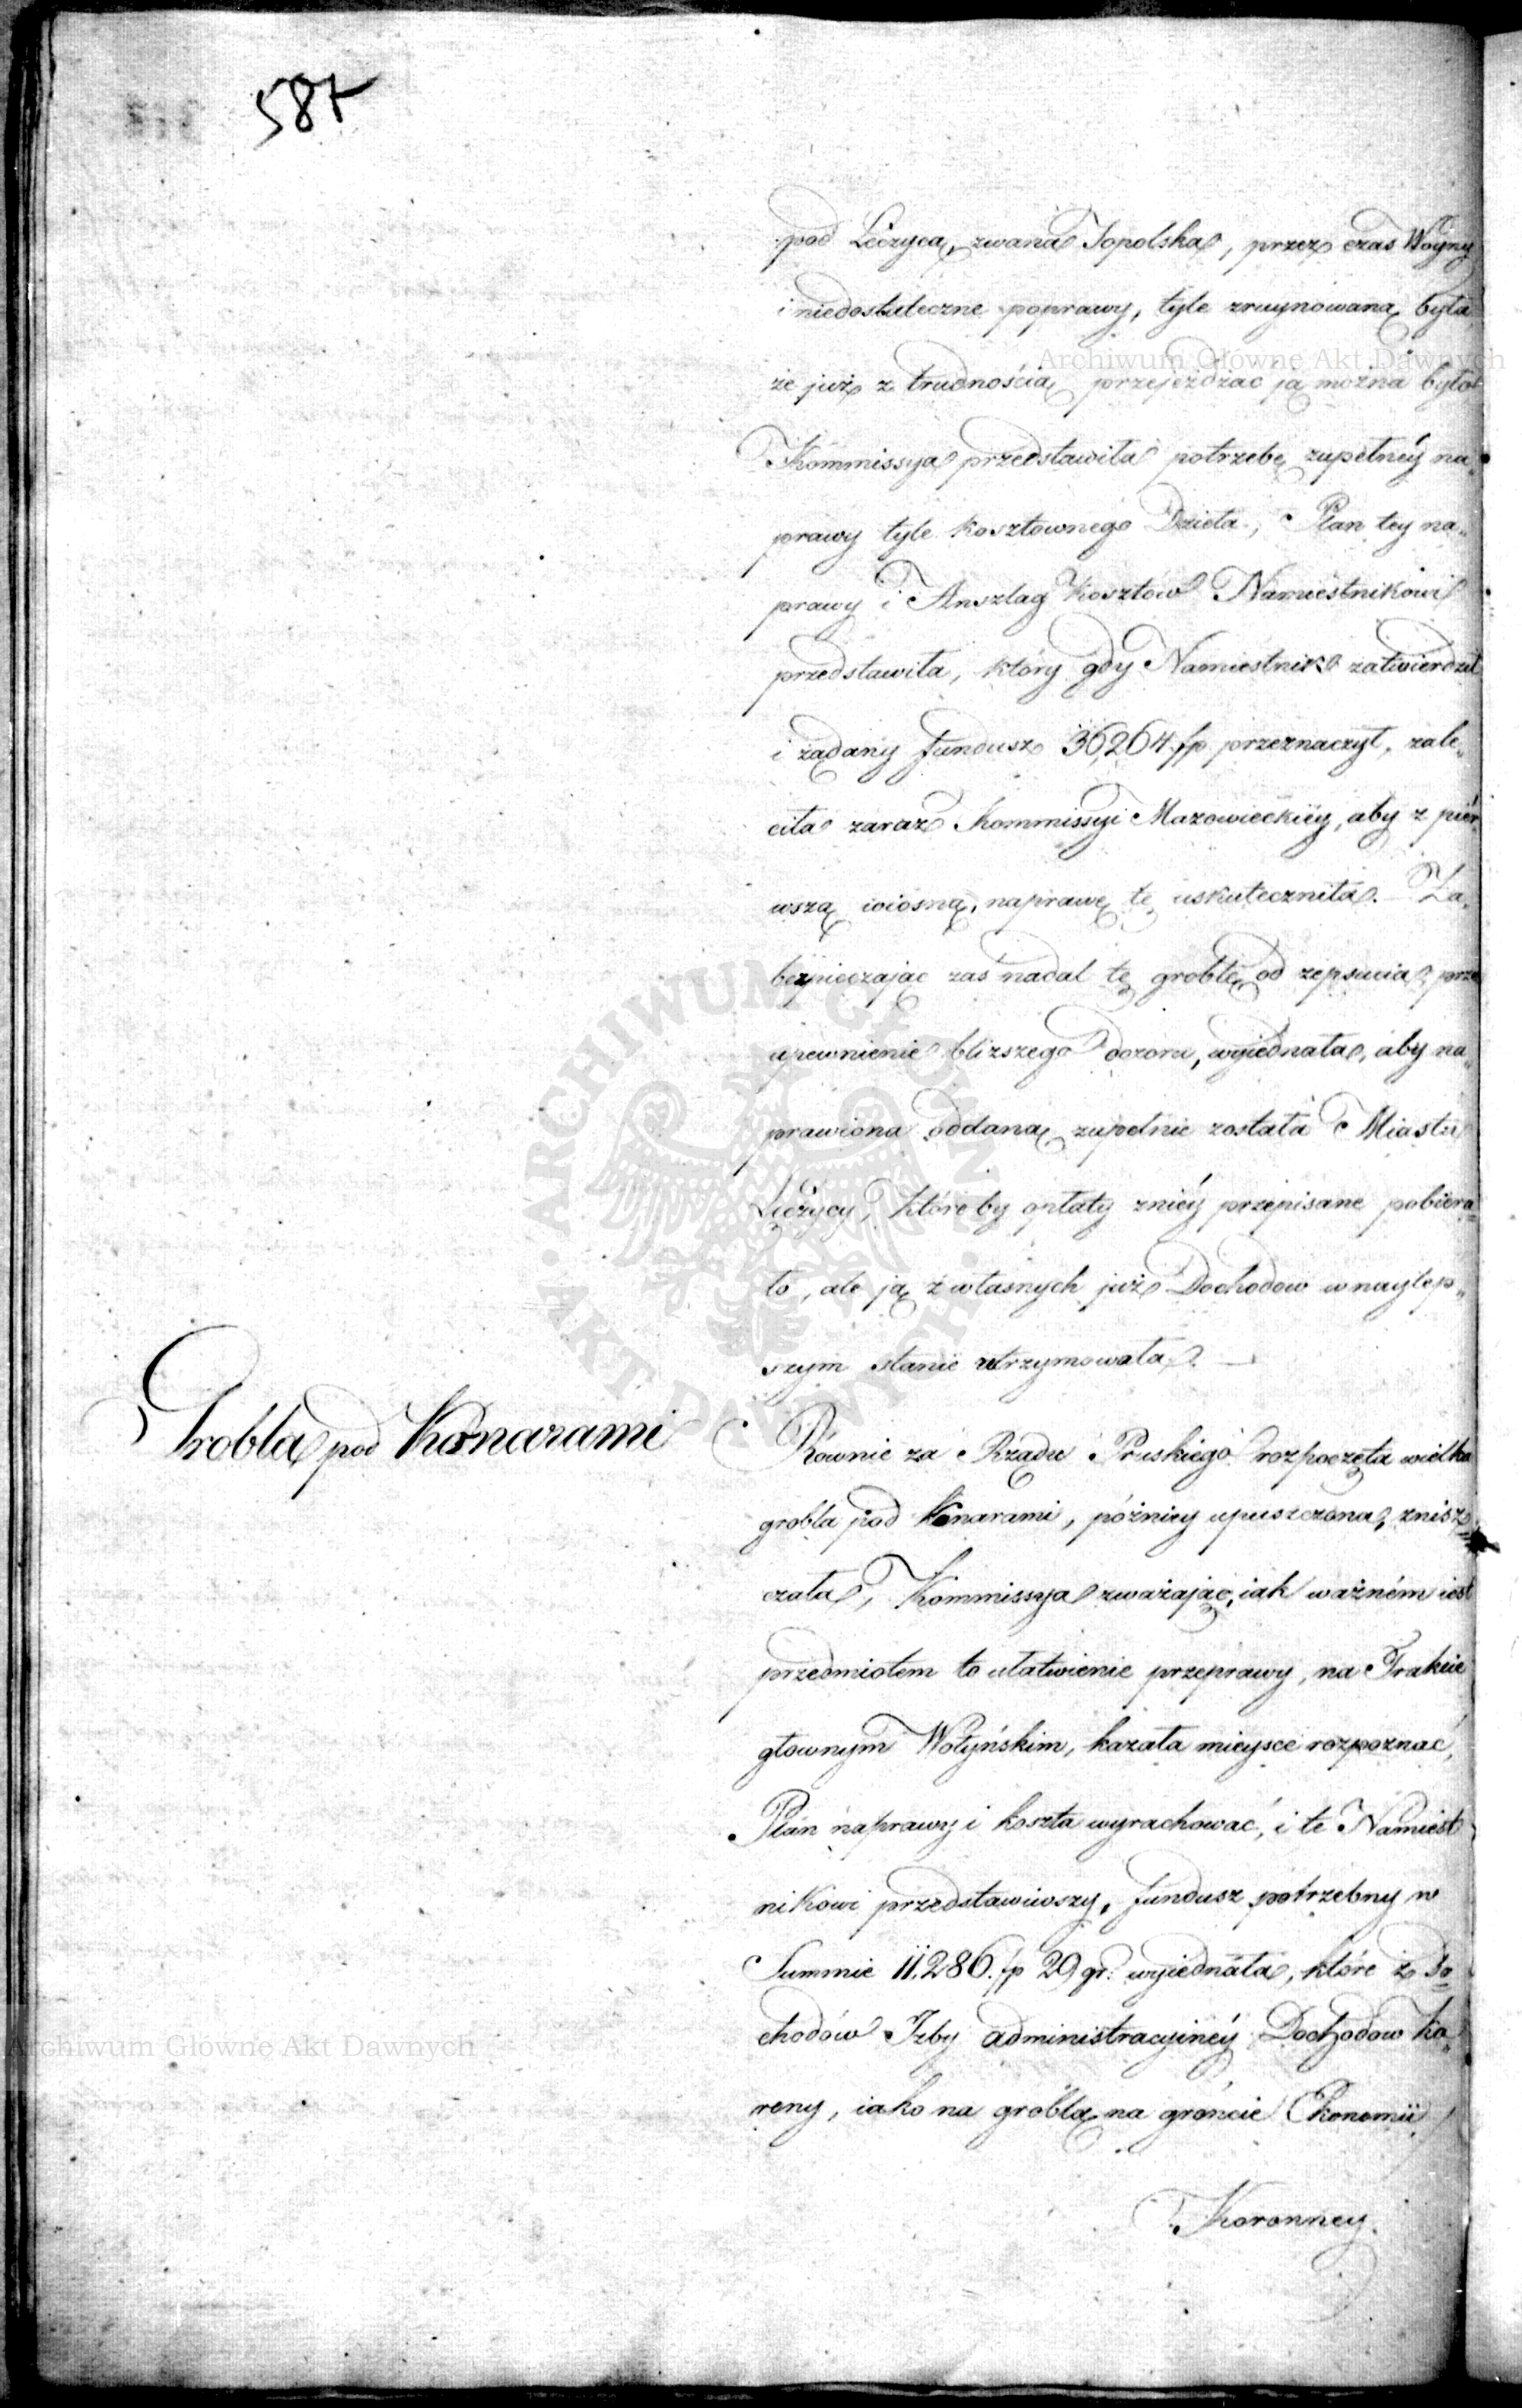 587
pod Łęczycą, zwana Topolska, przez czas Woyny
i niedostateczne poprawy, tyle zruynowaną była
że już z trudnością przejeżdżac ją można było
Kommissya przedstawiła potrzebę zupełnéy na„
prawy tyle kosztownego Dzieła, Plan tey na„
prawy i Anszlag Kosztów Namiestnikowi
przedstawiła, który gdy Namiestnik zatwierdził
i żądany fundusz 36,264 fp przeznaczył, zale„
ciła zaraz Kommissyi Mazowieckiéy, aby z piér„
wszą wiosną, naprawę tę uskuteczniła. Za„
bezpieczając zaś nadal tę groblę od zepsucia, prze
upewnienie bliższego dozoru, wyiednała, aby na„
prawiona oddaną zupełnie została Miastu
Łęczycy, któreby opłaty zniéy przepisane pobiera=
ło, ale ją z własnych już Dochodow w naylep„
szym stanie utrzymowała. —
Grobla pod Konarami
Rownie za Rządu Pruskiego rozpoczęta wielka
grobla pod Konarami, póżniey opuszczona, znisz„
czała, Kommissya zważając, iak ważném iest
przedmiotem to ułatwienie przeprawy, na Trakcie
głownym Wołyńskim, kazała mieysce rozpoznać,
Plan naprawy i koszta wyrachować, i te Namiest
nikowi przedstawiwszy, fundusz potrzebny w
Summie 11,286. fp 29 gr. wyiednała, które z do=
chodów Izby administracyinéy Dochodow Ko„
rony, iako na groblą na gróncie Ekonomii
Koronney.
Archiwum Główne Akt Dawnych
Archiwum Główne Akt Dawnych
ARCHIWUM GŁÓWNE AKT DAWNYCH